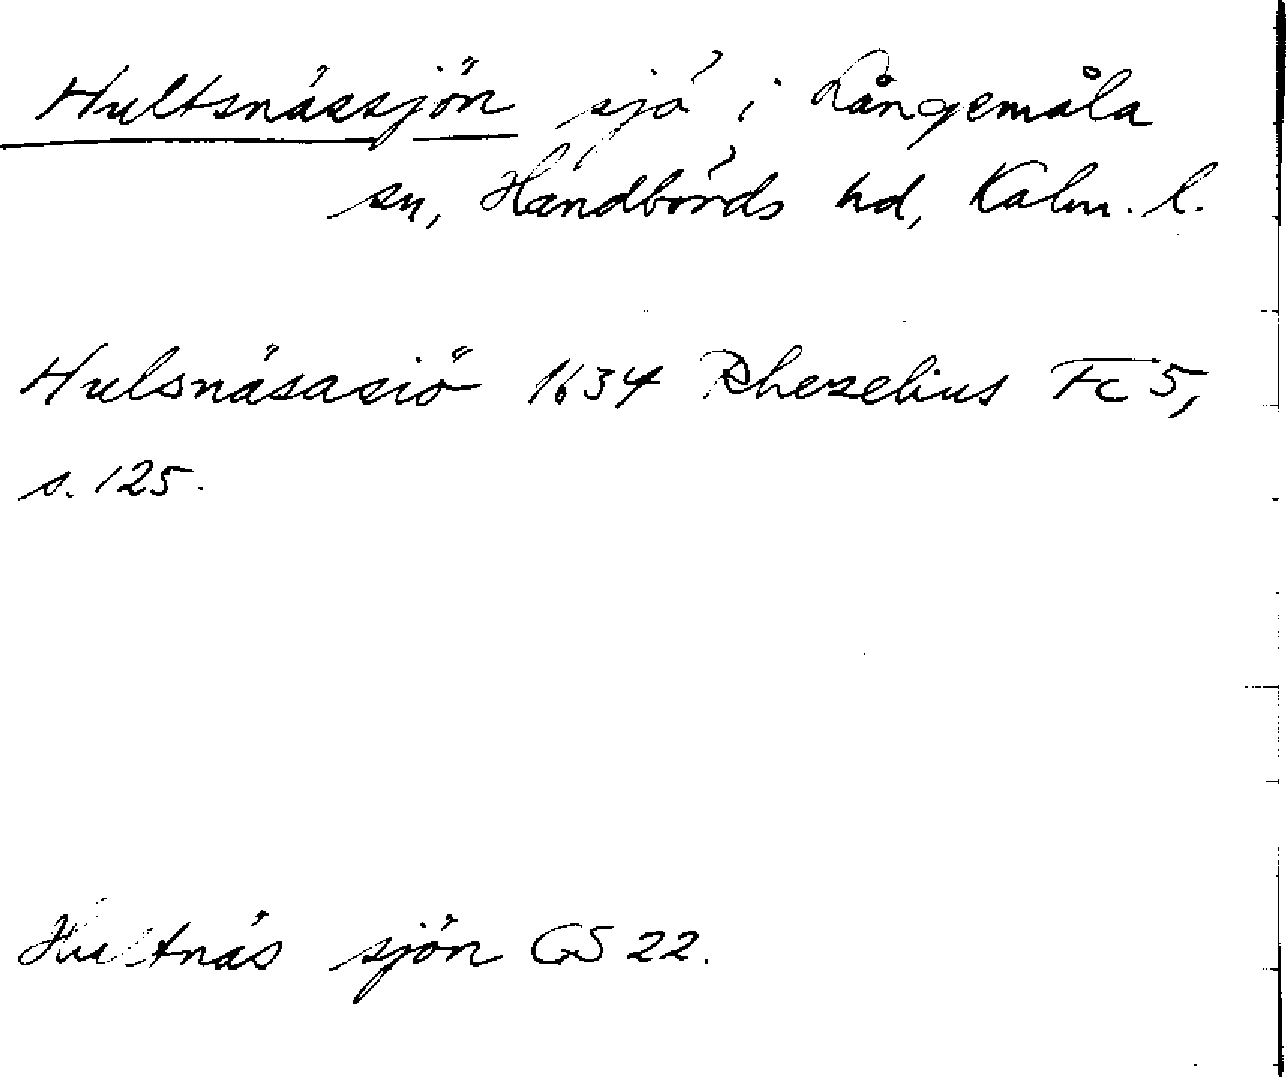 Hultsnässjön sjö i Långemåla
sn, Handbörds hd, Kalm. l.
Hulsnäsasiö 1634 Rhezelius Fc 5,
s. 125.
Hultnäs sjön GS 22.